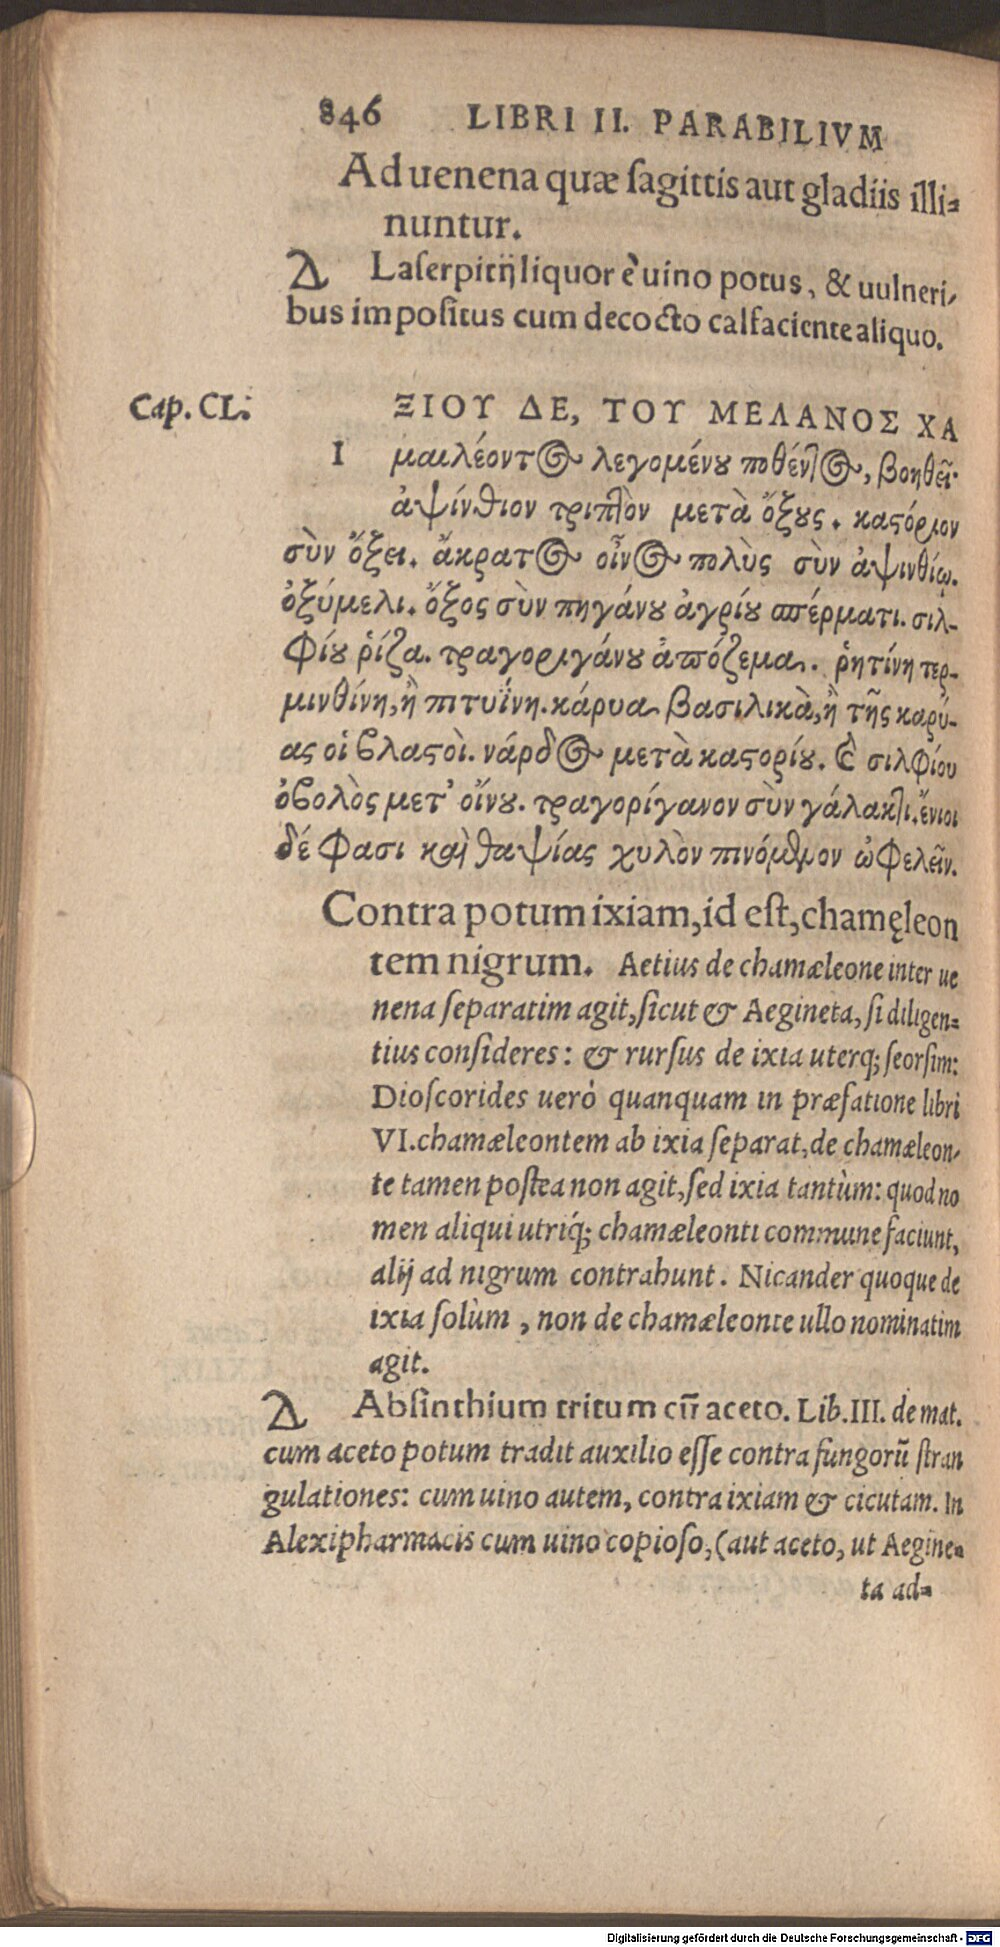 846 LIBRI II. PARABILIVM
Ad uenena quæ ſagittis aut gladiis illi=
nuntur.
Δ Laſerpitij liquor è uino potus, & uulneri,
bus impoſitus cum decocto calfaciente aliquo.
Cap. CL. ΞΙΟΥ ΔΕ, ΤΟΥ ΜΕΛΑΝΟΣ ΧΑ
Ι μαιλέοντος λεγομένου ποθέντος, βοηθεῖ·
ἀψίνθιον τριπτὸν μετὰ ὄξους. καστόριον
σὺν ὄξει. ἄκρατος οἶνος πολὺς σὺν ἀψινθίῳ.
ὀξύμελι. ὄξος σὺν πηγάνου ἀγρίου σπέρματι. σιλ-
φίου ῥίζα. τραγοριγάνου ἀπόζεμα. ῥητίνη τερ-
μινθίνη, ἢ πιτυΐνη. κάρυα βασιλικὰ, ἢ τῆς καρύ-
ας οἱ βλαστοὶ. νάρδος μετὰ καστορίου. καὶ σιλφίου
ὀβολὸς μετ' οἴνου. τραγορίγανον σὺν γάλακτι. ἔνιοι
δέ φασι καὶ θαψίας χυλὸν πινόμενον ὠφελεῖν.
Contra potum ixiam, id eſt, chamęleon
tem nigrum. Aetius de chamæleone inter ue
nena ſeparatim agit, ſicut & Aegineta, ſi diligen=
tius conſideres: & rurſus de ixia uterq; ſeorſim:
Dioſcorides uerò quanquam in præfatione libri
VI. chamæleontem ab ixia ſeparat, de chamæleon,
te tamen poſtea non agit, ſed ixia tantùm: quod no
men aliqui utriq́; chamæleonti commune faciunt,
alij ad nigrum contrahunt. Nicander quoque de
ixia ſolùm, non de chamæleonte ullo nominatim
agit.
Δ Abſinthium tritum cū aceto. Lib. III. de mat.
cum aceto potum tradit auxilio eſſe contra fungorū ſtran
gulationes: cum uino autem, contra ixiam & cicutam. In
Alexipharmacis cum uino copioſo, (aut aceto, ut Aegine=
ta ad=
Digitalisierung gefördert durch die Deutsche Forschungsgemeinschaft - DFG